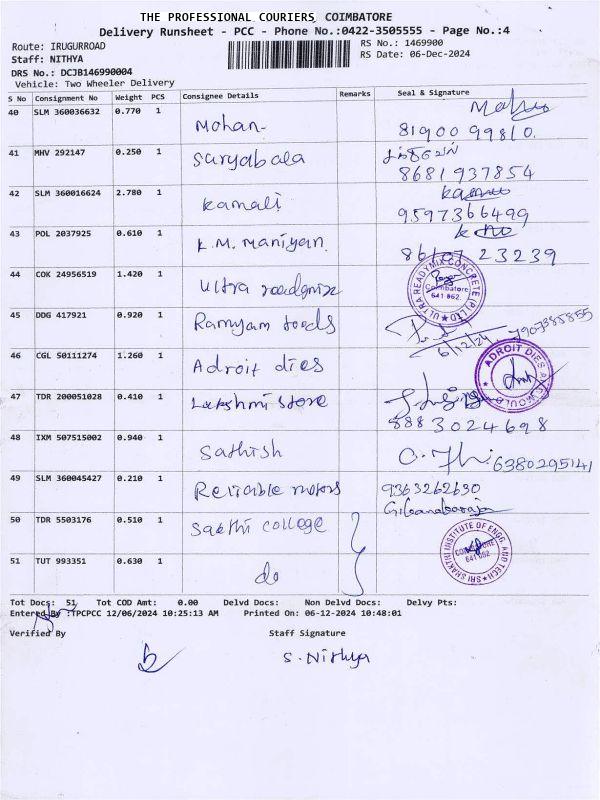 THE PROFESSIONAL COURIERS, COIMBATORE
Delivery Runsheet - PCC - Phone No.:0422-3505555 - Page No.:4
Route: IRUGURROAD
RS No.: 1469900
Staff: NITHYA
RS Date: 06-Dec-2024
DRS No.: DCJB146990004
Vehicle: Two Wheeler Delivery
S No Consignment No Weight PCS Consignee Details Remarks Seal & Signature
40 SLM 360036632 0.770 1 Mohan- 81900 99810.
41 MHV 292147 0.250 1 Suryabala 8681937854
42 SLM 360016624 2.780 1 Kamali 9597366499
43 POL 2037925 0.610 1 K.M. Maniyan 23239
44 COK 24956519 1.420 1 Ultra ULTRA READYMIX CONCRETE (P) LTD Coimbatore 641 062
45 DDG 417921 0.920 1 foods 6/12/24, 7907385855
46 CGL 50111274 1.260 1 Adroit dies ADROIT DIES
47 TDR 200051028 0.410 1 Lakshmi Store 8883024698
48 IXM 507515002 0.940 1 Sathish 6380295141
49 SLM 360045427 0.210 1 Reliable motors 9363262630
50 TDR 5503176 0.510 1 Sakthi college SRI SHAKTHI INSTITUTE OF ENGG. AND TECH COIMBATORE 641 062
51 TUT 993351 0.630 1 do
Tot Docs: 51 Tot COD Amt: 0.00 Delvd Docs: Non Delvd Docs: Delvy Pts:
Entered By :TPCPCC 12/06/2024 10:25:13 AM Printed On: 06-12-2024 10:48:01
Verified By Staff Signature
S. Nithya